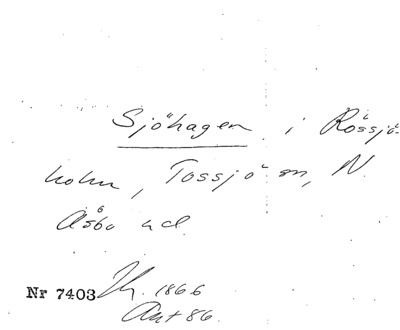 Sjöhagen i Rössjö-
holm, Tossjö sn, N.
Åsbo hd.
Nr 7403 1866
Ant 86.